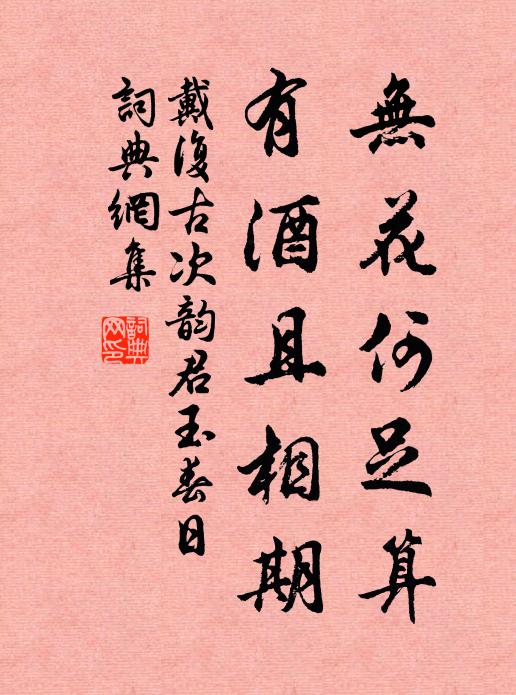 無花何足算
有酒且相期
戴復古次韵君玉春日
詞典網集
詞典
网印